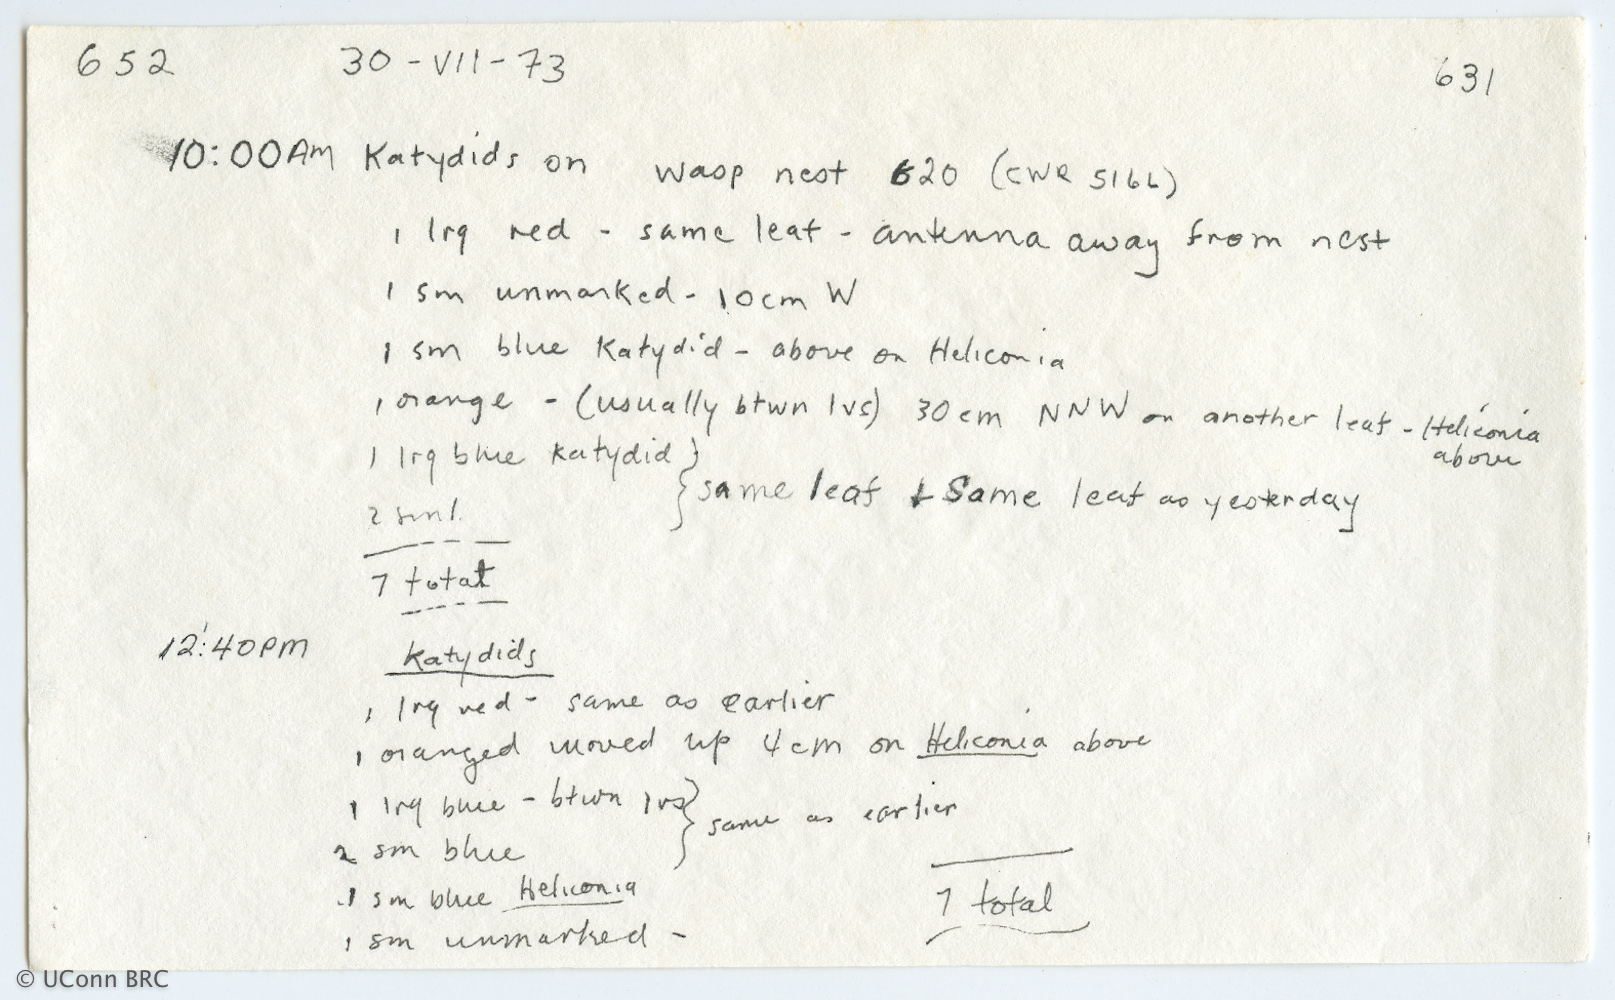 652 30-VII-73 631
10:00AM Katydids on wasp nest 620 (CWR 5166)
1 lrg red - same leaf - antenna away from nest
1 sm unmarked - 10cm W
1 sm blue Katydid - above on Heliconia
1 orange - (usually btwn lvs) 30cm NNW on another leaf - Heliconia
above
1 lrg blue Katydid
same leaf + same leaf as yesterday
2 sml.
7 total
12:40PM Katydids
1 lrg red - same as earlier
1 oranged moved up 4cm on Heliconia above
1 lrg blue - btwn lvs
same as earlier
2 sm blue
1 sm blue Heliconia
7 total
1 sm unmarked -
© UConn BRC